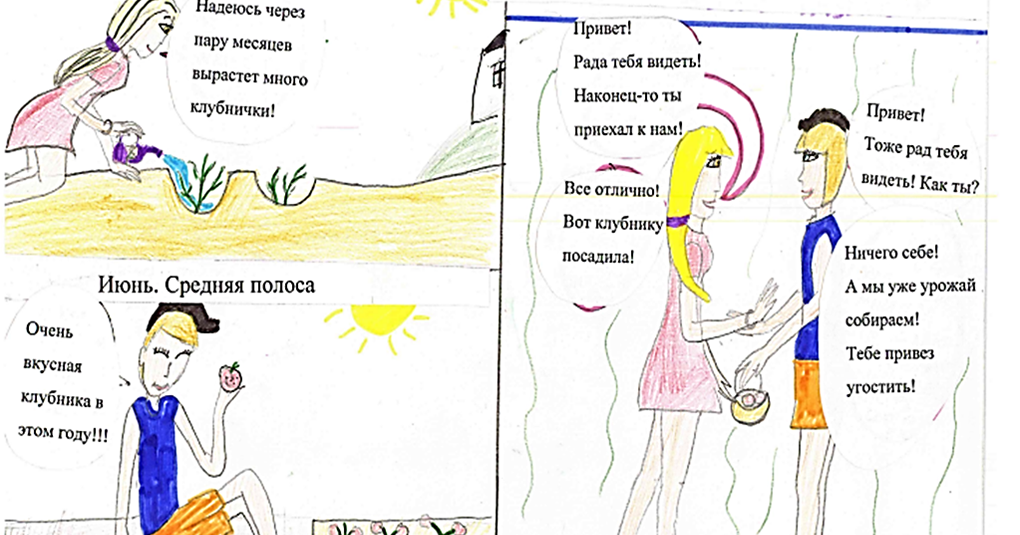 Надеюсь через
пару месяцев
вырастет много
клубнички!
Июнь. Средняя полоса
Очень
вкусная
клубника в
этом году!!!
Привет!
Рада тебя видеть!
Наконец-то ты
приехал к нам!
Привет!
Тоже рад тебя
видеть! Как ты?
Все отлично!
Вот клубнику
посадила!
Ничего себе!
А мы уже урожай
собираем!
Тебе привез
угостить!